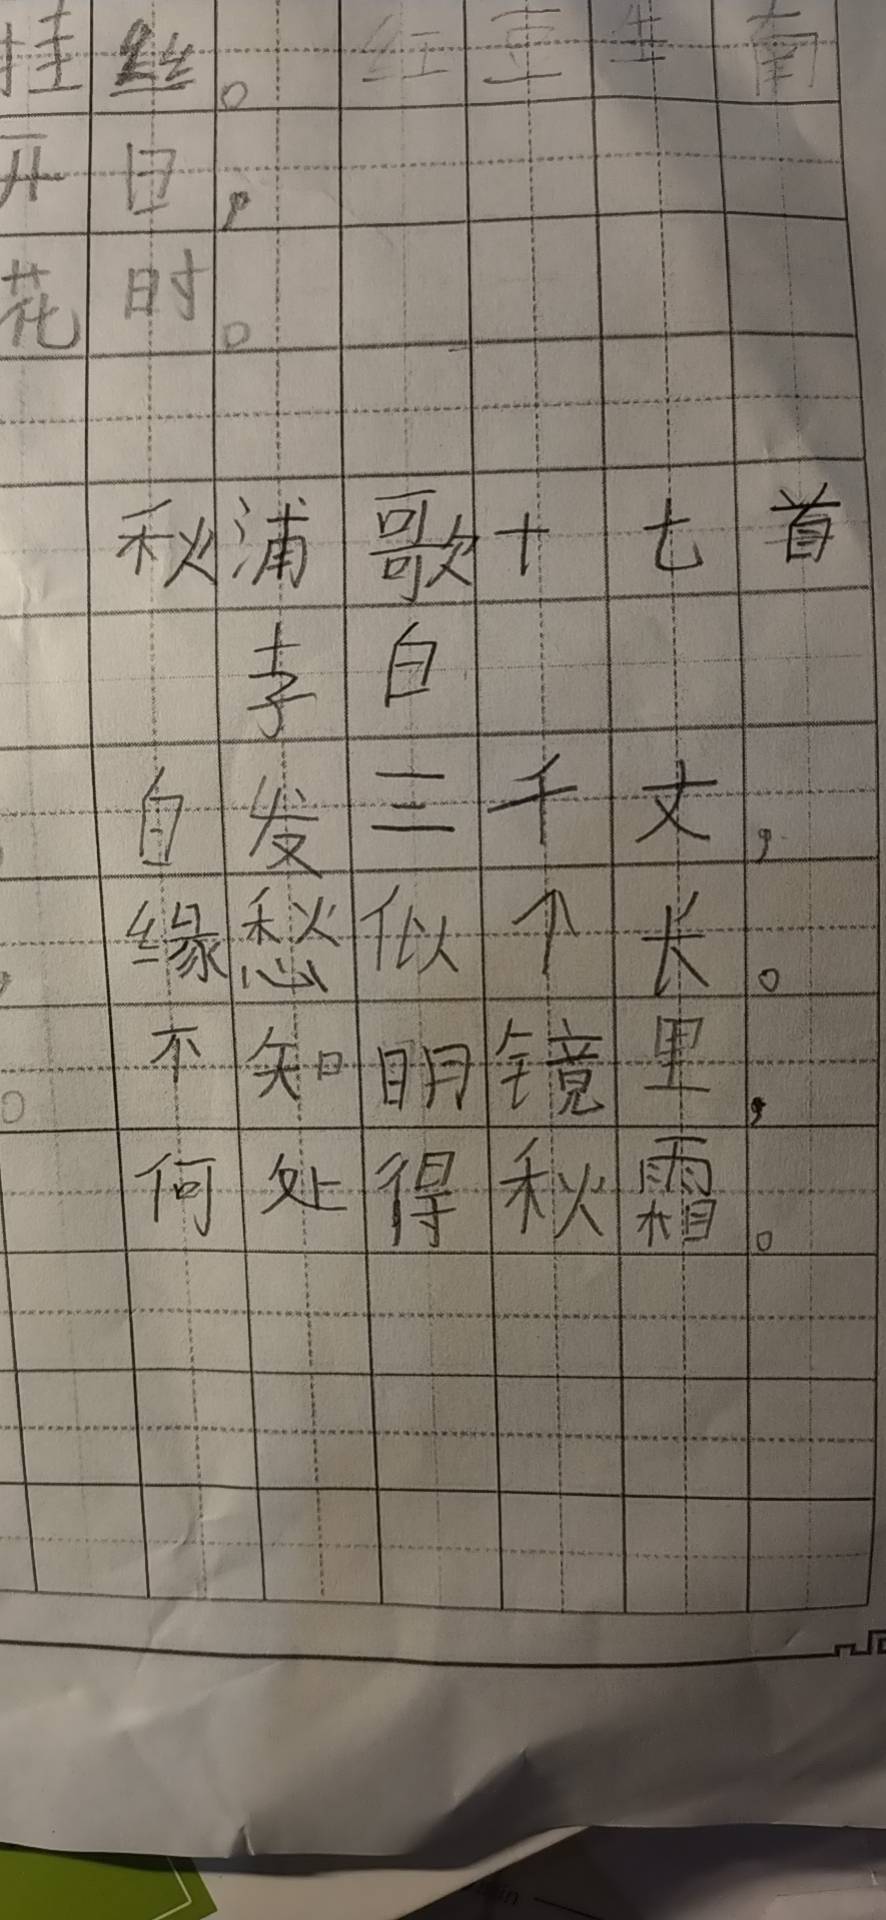 挂丝。红豆生南
开日，
花时。
秋浦歌十七首
李白
白发三千丈，
缘愁似个长。
不知明镜里，
何处得秋霜。